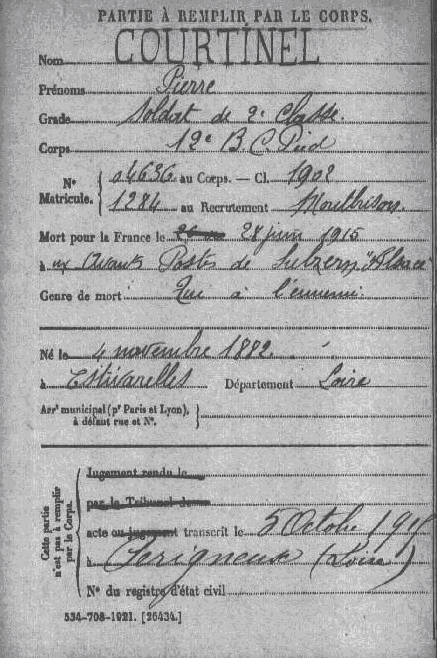 PARTIE À REMPLIR PAR LE CORPS.
Nom COURTINEL
Prénoms Pierre
Grade Soldat de 2e classe.
Corps 12e B. C. Pied
N° Matricule. { 04636 au Corps. — Cl. 1902
1284 au Recrutement Montbrison
Mort pour la France le 28 juin 1915
à ux Avants Postes de "Alsace"
Genre de mort Tué à l'ennemi
Né le 4 novembre 1882
à Estivarelles Département Loire
Arrt municipal (pr Paris et Lyon), à défaut rue et N°. }
Cette partie n'est pas à remplir par le Corps.
Jugement rendu le
par le Tribunal de
acte ou jugement transcrit le 5 Octobre 1915
à Lerigneux (Loire)
N° du registre d'état civil
534-708-1921. [26434.]